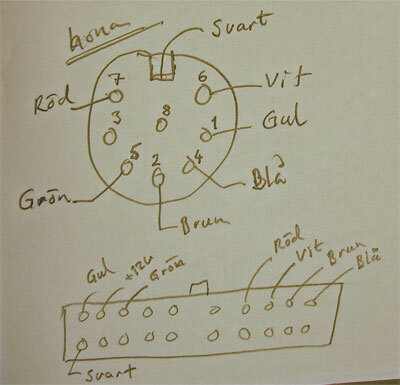 hona
Svart
7
6
Röd
Vit
3
8
1
Gul
5
2
4
Grön
Blå
Brun
Gul +12V Grön
Röd Vit Brun Blå
Svart